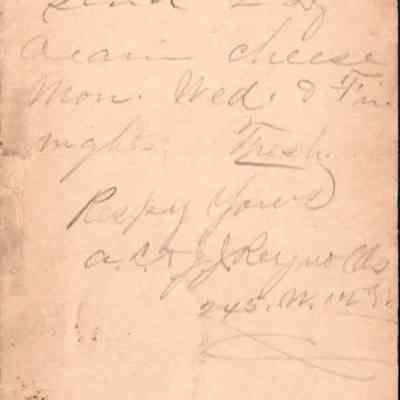 send 2 
cream cheese
Mon. Wed. & Fri.
nights. Fresh.
Respy Yours
a. C. & J. J. Reynolds
245. W.